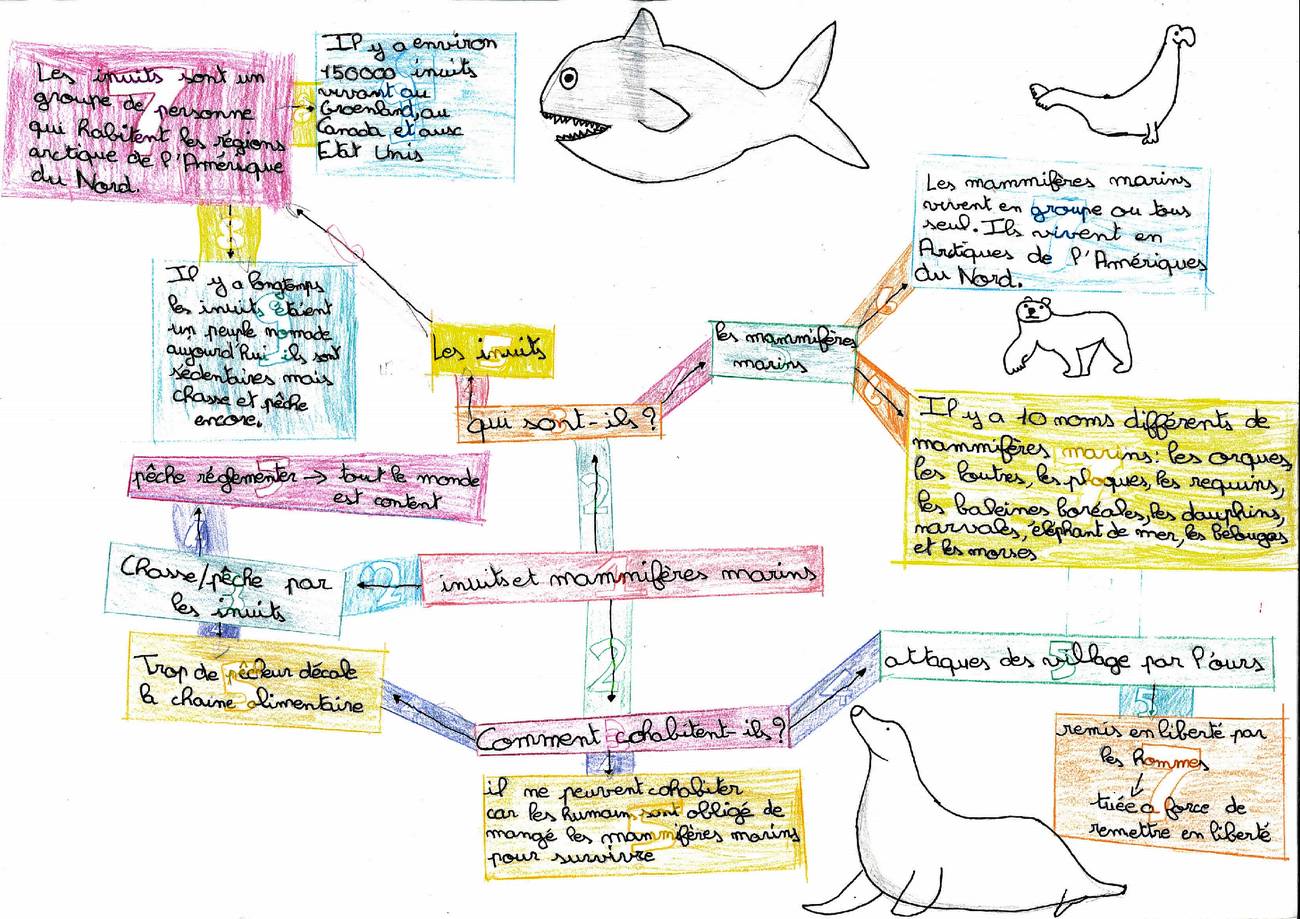 Les inuits sont un
groupe de personne
qui habitent les régions
arctique de l'Amérique
du Nord.
Il y a environ
150000 inuits
vivant au
Groenland, au
Canada et aux
Etat Unis
Il y a longtemps
les inuits étaient
un peuple nomade
aujourd'hui ils sont
sédentaires mais
chasse et pêche
encore.
Les inuits
qui sont-ils ?
les mammifères
marins
Les mammifères marins
vivent en groupe ou tous
seul. Ils vivent en
Arctiques de l'Amériques
du Nord.
Il y a 10 noms différents de
mammifères marins : les orques,
les loutres, les phoques, les requins,
les baleines boréales, les dauphins,
narvales, éléphant de mer, les bélougas
et les morses
pêche réglementer → tout le monde
est content
Chasse/pêche par
les inuits
inuits et mammifères marins
Trop de pêcheur décale
la chaine alimentaire
Comment cohabitent-ils ?
il ne peuvent cohabiter
car les humain sont obligé de
mangé les mammifères marins
pour survivre
attaques des village par l'ours
remis en liberté par
les hommes
tuée a force de
remettre en liberté